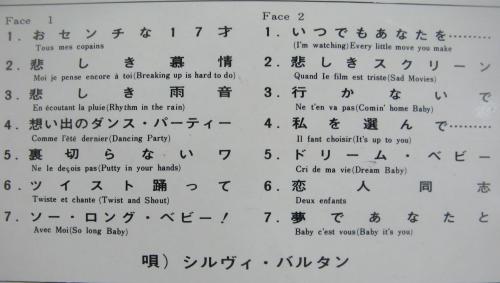 Face 1
1. おセンチな17才
Tous mes copains
2. 悲しき慕情
Moi je pense encore à toi(Breaking up is hard to do)
3. 悲しき雨音
En écoutant la pluie(Rhythm in the rain)
4. 想い出のダンス・パーティー
Comme l'été dernier(Dancing Party)
5. 裏切らないワ
Ne le deçois pas(Putty in your hands)
6. ツイスト踊って
Twiste et chante (Twist and Shout)
7. ソー・ロング・ベビー!
Avec Moi(So long Baby)
Face 2
1. いつでもあなたを………
(I'm watching)Every little move you make
2. 悲しきスクリーン
Quand le film est triste(Sad Movies)
3. 行かないで
Ne t'en va pas(Comin' home Baby)
4. 私を選んで………
Il fant choisir(It's up to you)
5. ドリーム・ベビー
Cri de ma vie(Dream Baby)
6. 恋人同志
Deux enfants
7. 夢であなたと
Baby c'est vous(Baby it's you)
唄) シルヴィ・バルタン